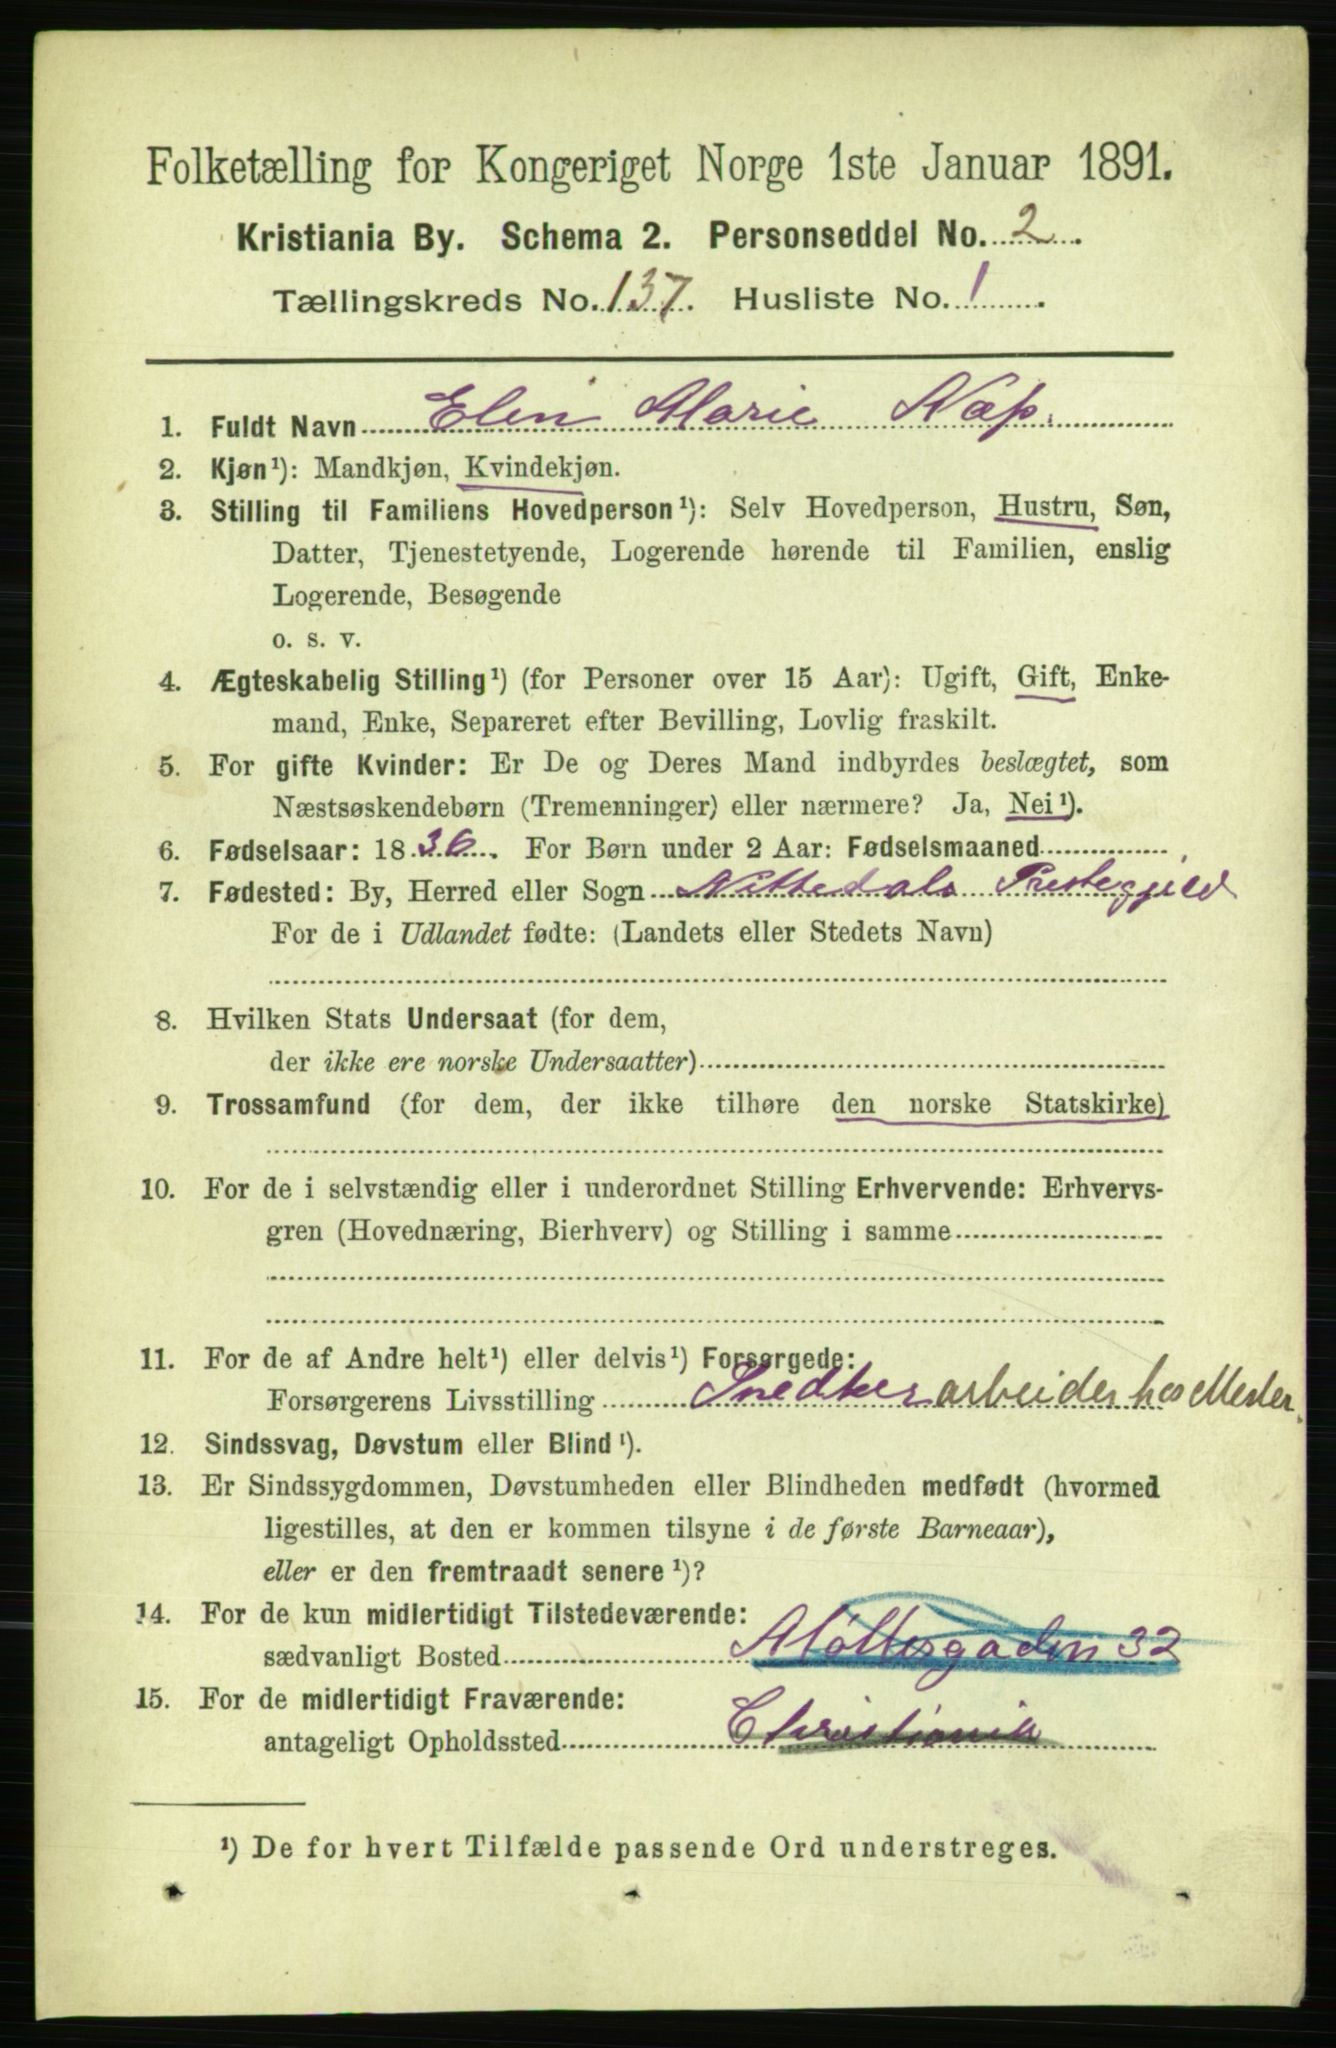 Folketælling for Kongeriget Norge 1ste Januar 1891.
Kristiania By. Schema 2. Personseddel No. 2.
Tællingskreds No. 137. Husliste No. 1.
1. Fuldt Navn Elen Marie Næss.
2. Kjøn¹): Mandkjøn, Kvindekjøn.
3. Stilling til Familiens Hovedperson¹): Selv Hovedperson, Hustru, Søn,
Datter, Tjenestetyende, Logerende hørende til Familien, enslig
Logerende, Besøgende
o. s. v.
4. Ægteskabelig Stilling¹) (for Personer over 15 Aar): Ugift, Gift, Enke-
mand, Enke, Separeret efter Bevilling, Lovlig fraskilt.
5. For gifte Kvinder: Er De og Deres Mand indbyrdes beslægtet, som
Næstsøskendebørn (Tremenninger) eller nærmere? Ja, Nei¹).
6. Fødselsaar: 1836. For Børn under 2 Aar: Fødselsmaaned
7. Fødested: By, Herred eller Sogn Nittedals Prestegjeld
For de i Udlandet fødte: (Landets eller Stedets Navn)
8. Hvilken Stats Undersaat (for dem,
der ikke ere norske Undersaatter)
9. Trossamfund (for dem, der ikke tilhøre den norske Statskirke)
10. For de i selvstændig eller i underordnet Stilling Erhvervende: Erhvervs-
gren (Hovednæring, Bierhverv) og Stilling i samme
11. For de af Andre helt¹) eller delvis¹) Forsørgede:
Forsørgerens Livsstilling Snedkerarbeider hos Mester.
12. Sindssvag, Døvstum eller Blind¹).
13. Er Sindssygdommen, Døvstumheden eller Blindheden medfødt (hvormed
ligestilles, at den er kommen tilsyne i de første Barneaar),
eller er den fremtraadt senere¹)?
14. For de kun midlertidigt Tilstedeværende:
sædvanligt Bosted Møllergaden 32
15. For de midlertidigt Fraværende:
antageligt Opholdssted Christiania
¹) De for hvert Tilfælde passende Ord understreges.